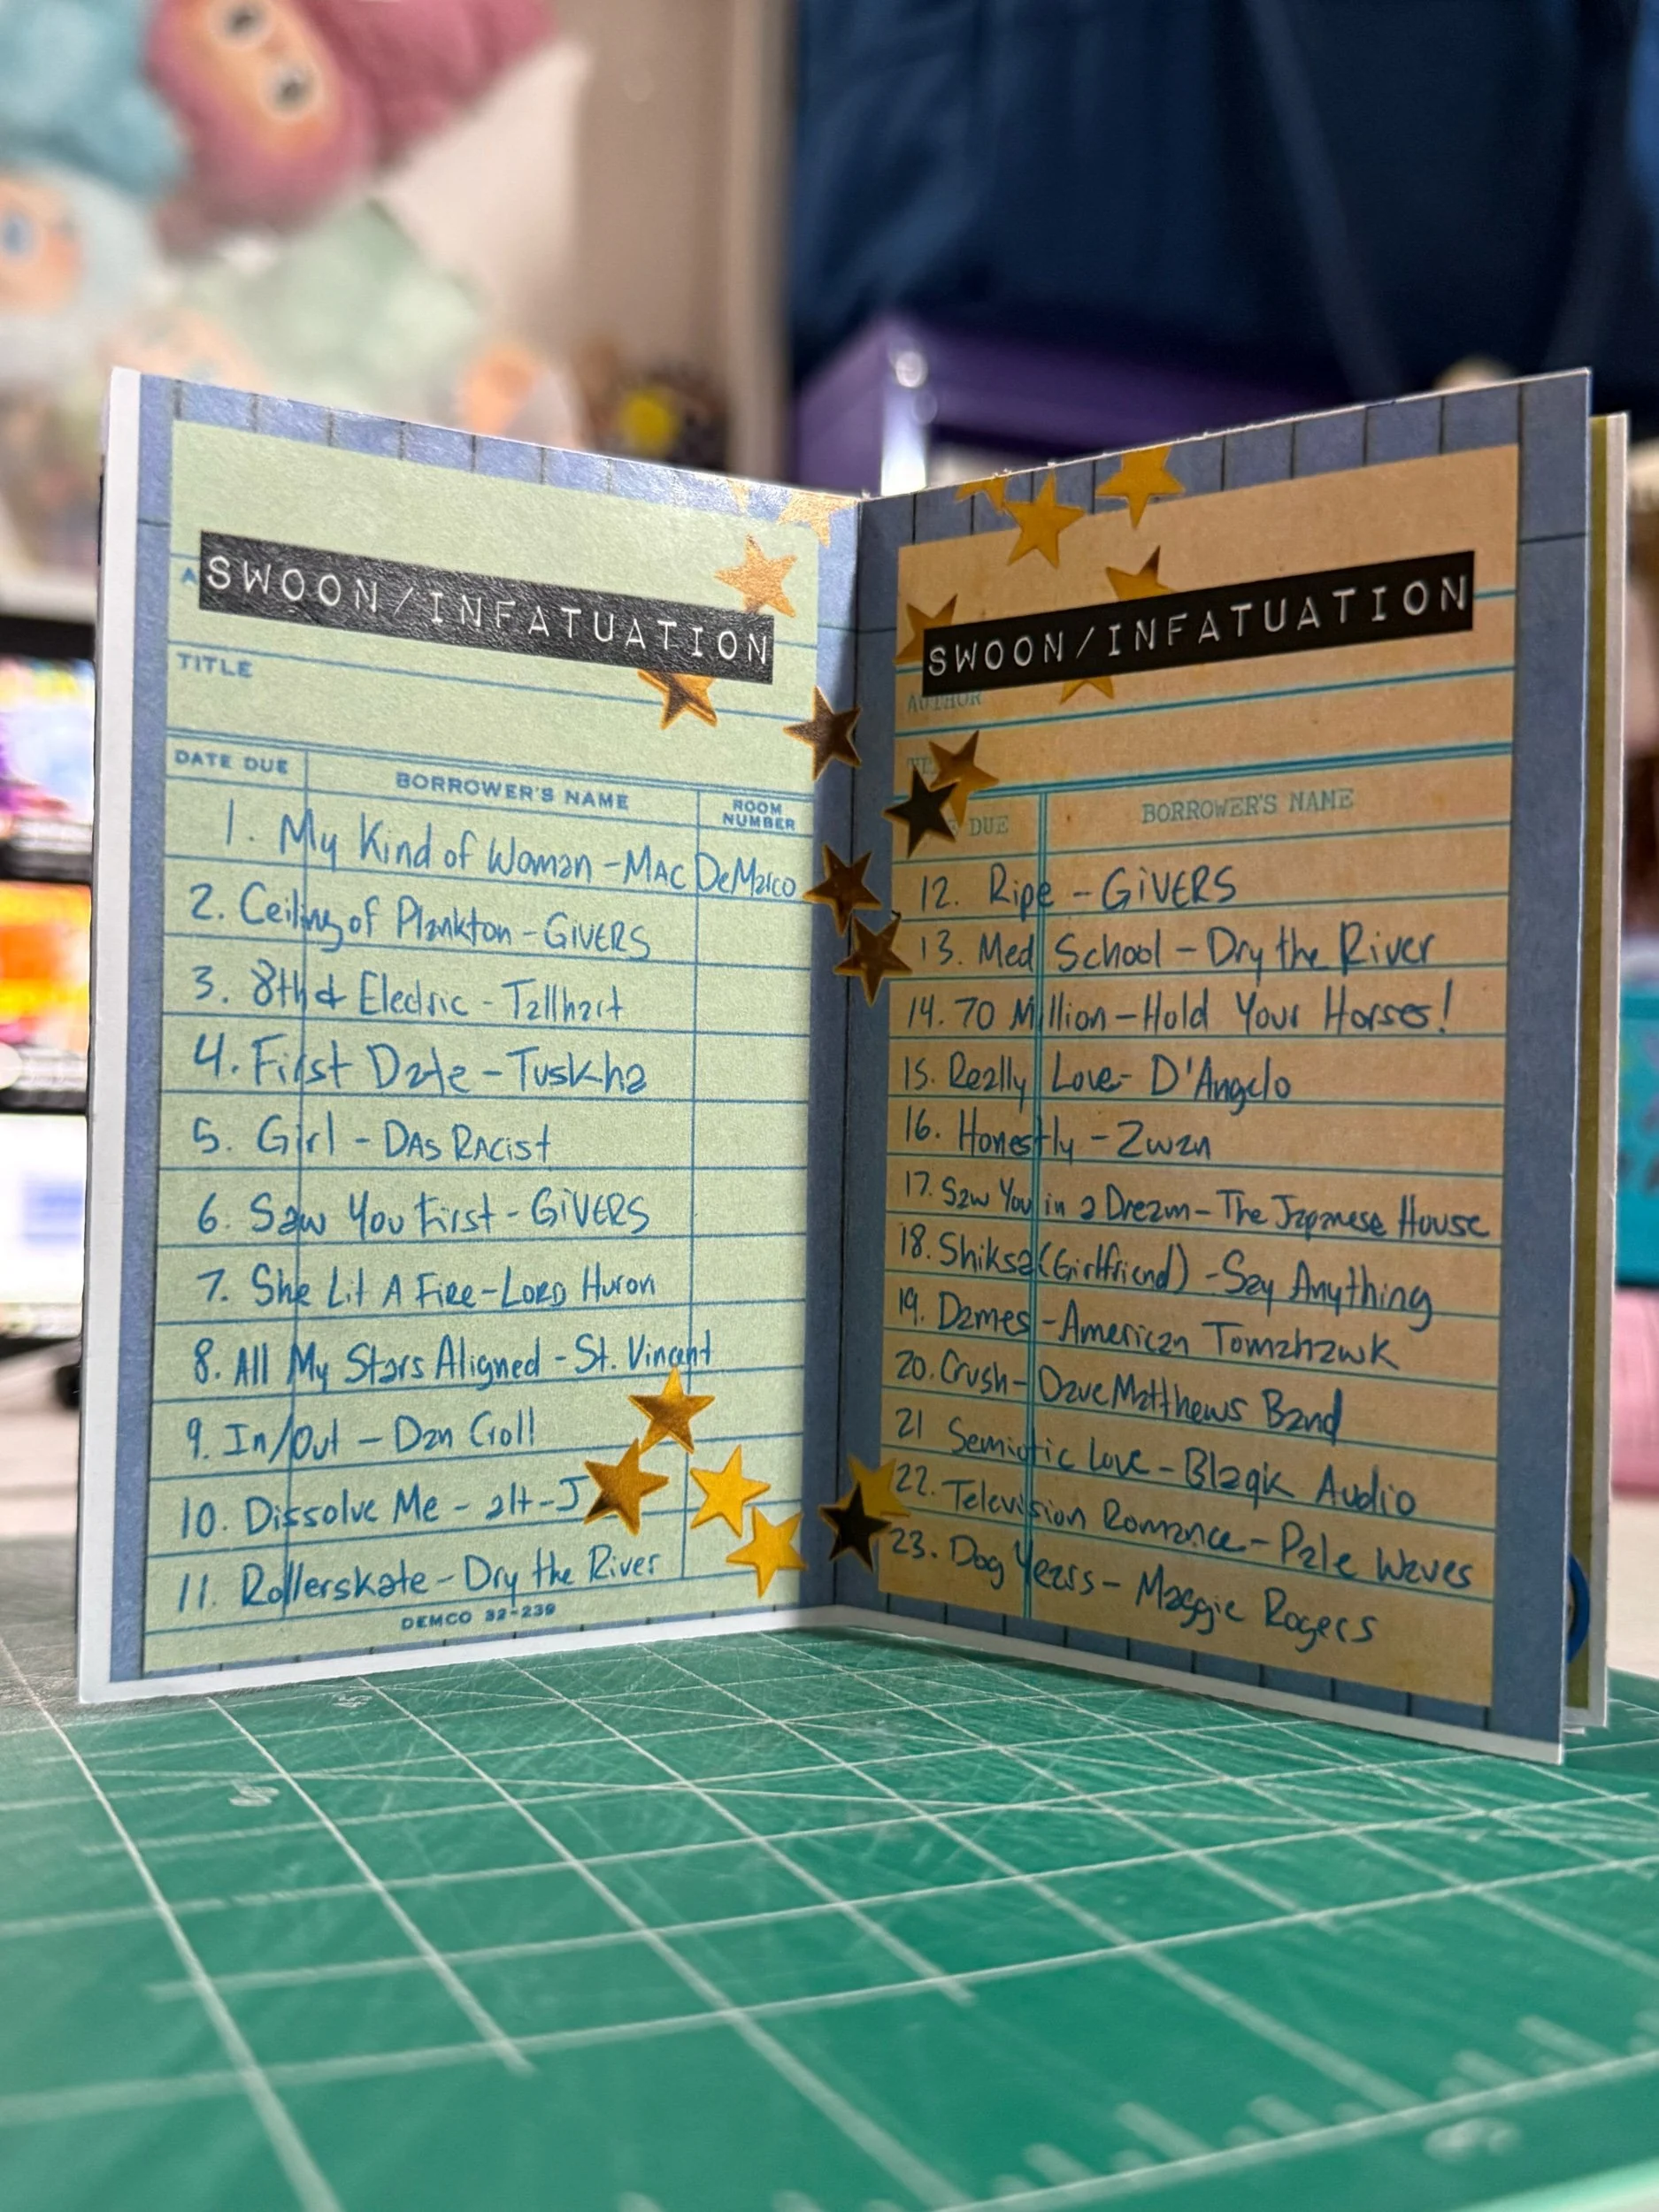 SWOON/INFATUATION
A
TITLE
DATE DUE BORROWER'S NAME ROOM NUMBER
1. My Kind of Woman - MAC DeMarco
2. Ceiling of Plankton - GiVERS
3. 8th & Electric - Tallhart
4. First Date - Tuskha
5. Girl - DAs RAcist
6. Saw You First - GiVERS
7. She Lit A Fire - Lord Huron
8. All My Stars Aligned - St. Vincent
9. In/Out - Dan Croll
10. Dissolve Me - alt-J
11. Rollerskate - Dry the River
DEMCO 32-239
SWOON/INFATUATION
AUTHOR
DUE BORROWER'S NAME
12. Ripe - GiVERS
13. Med School - Dry the River
14. 70 Million - Hold Your Horses!
15. Really Love - D'Angelo
16. Honestly - Zwan
17. Saw You in a Dream - The Japanese House
18. Shiksa (Girlfriend) - Say Anything
19. Dames - American Tomahawk
20. Crush - Dave Matthews Band
21 Semiotic Love - Blaqk Audio
22. Television Romance - Pale Waves
23. Dog Years - Maggie Rogers